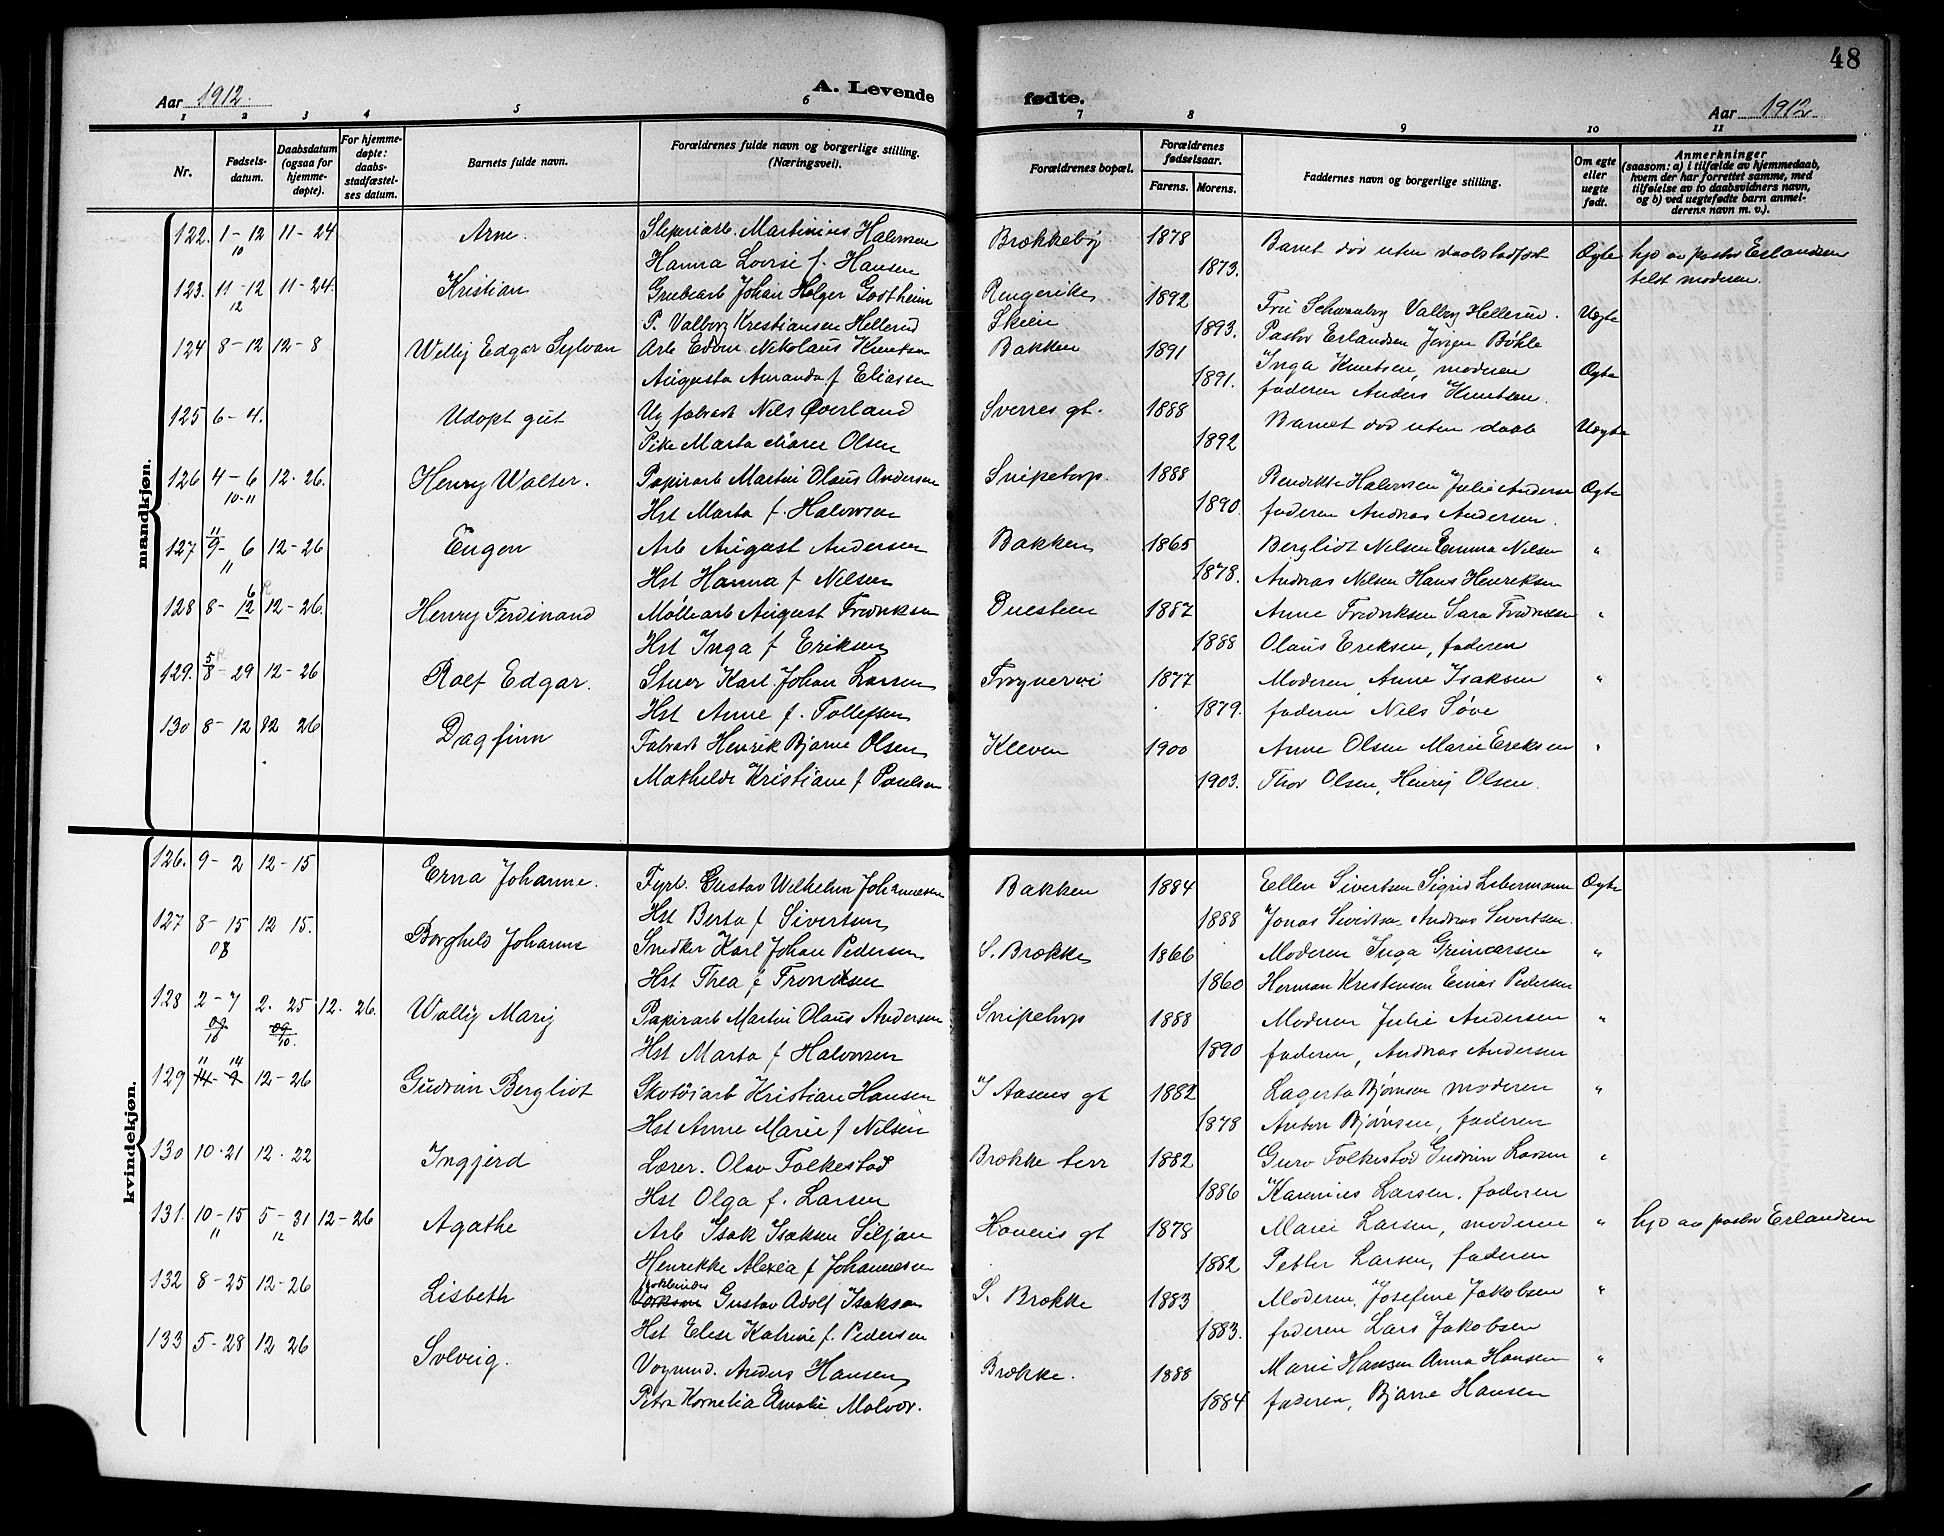 48
Aar 1912.
A. Levende
fødte.
Aar 1912
1 2 3 4 5 6 7 8 9 10 11
Nr.
Fødsels-
datum.
Daabsdatum
(ogsaa for
hjemme-
døpte).
For hjemme-
døpte:
daabs-
stadfæstel-
ses datum.
Barnets fulde navn.
Forældrenes fulde navn og borgerlige stilling.
(Næringsvei).
Forældrenes bopæl.
Forældrenes
fødselsaar.
Farens. Morens.
Faddernes navn og borgerlige stilling.
Om egte
eller
uegte
født.
Anmerkninger
(saasom: a) i tilfælde av hjemmedaab,
hvem der har forrettet samme, med
tilføielse av to daabsvidners navn,
og b) ved uegtefødte barn anmel-
derens navn m. v.).
mandkjøn.
122. 1-12 11-24 Arne. Martinius Halvorsen Brækkebøj 1878 Barnet død uten daabstadfæst Egte hjd av pastor Erlandsen
10 Hanna Lovise f. Hansen 1873. moderen.
123. 11-12 11-24. Kristian Grubearb Johan Holger Godtheim Ringerike 1892 Fru Valby Hellerud. Uegte
12 P. Valborg Kristiansen Hellerud Skien 1893. Pastor Erlandsen Bøhle
124 8-12 12-8 Willy Edgar Sylvan Arb Edvin Nikolaus Knutsen Bakken 1891 Inga Knutsen, moderen Egte
Augusta Amanda f Eliassen 1891. faderen Anders Knutsen.
125 6-4. Udøpt gut Ug fabrarb Nils Øverland Sverres gt. 1888 Barnet død uten daab Uegte
Pike Marta Marie Olsen 1892
126 4-6 12-26. Henry Walter. Papirarb Martin Olaus Andersen Snipetorp. 1888 Bendikte Halvorsen Julie Andersen Egte
10-11 Hst Marta f. Halvorsen 1890. faderen Andras Andersen.
127 9-6 12-26 Eugen Arb August Andersen Bakken 1865 Bergliot Nilsen Emma Nilsen "
11 Hst Hanna f Nilsen 1878. Andras Nilsen Hans Henriksen
128 8-12 12-26. Henry Ferdinand Møllearb August Fredriksen Duesteen 1887 Anne Fredriksen Sara Fredriksen "
Hst Inga f Eriksen 1888 Olaus Eriksen, faderen
129. 8-29 12-26 Rolf Edgar. Stuer Karl Johan Larsen 1877 Moderen Anne Isaksen "
Hst Anne f. Tollefsen 1879. faderen Nils Søve
130 8-12 12 26 Dagfinn Fabarb Henrik Bjarne Olsen Kleven 1900 Anne Olsen Marie Eriksen "
Mathilde Kristiane f Paulsen 1903. Thor Olsen, Henrij Olsen.
kvindekjøn.
126. 9-2 12-15 Erna Johanne. Fyrb. Gustav Wilhelm Johannesen Bakken 1884 Ellen Sivertsen Sigrid Libermann Egte
Hst Berta f Sivertsen 1888 Jonas Sivertsen Andras Sivertsen.
127 8-15 12 15. Borghild Johanne Snedker Karl Johan Pedersen S. Brække 1866 Moderen Inga "
08 Hst Thea f Trondsen 1860 Herman Kristensen Einar Pedersen
128 2-7 2. 25 12. 26. Wally Marij Papirarb Martin Olaus Andersen Snipetorp 1888 Moderen Julie Andersen "
09 10 09 10. Hst Marta f Halvorsen 1890 faderen, Andras Andersen
129 11 14 14-9 12-26 Gudrun Bergliot Skotøiarb Kristian Hansen I Aasens gt 1882 Lagerta Bjørnsen moderen "
Hst Anne Marie f Nilsen 1878 Anton Bjørnsen, faderen
130 10.21 12. 22 Ingjerd Lærer. Olav Folkestad Brække terr 1882 Guro Folkestad Gudrun Larsen "
Hst Olga f. Larsen 1886 Karenius Larsen. faderen
131. 10-15 5-31 12-26 Agathe Arb Isak Isaksen Siljan Hoveris gt 1878 Marie Larsen, moderen " hjd av pastor Erlandsen
11 12 Henrikke Alexia f Johannesen 1882 Petter Larsen, faderen
132 8-25 12-26 Lisbeth Gustav Adolf Isaksen S. Brække 1883 Moderen, Josefine Jakobsen "
Hst Elise Katrine f. Pedersen 1883. faderen Lars Jakobsen
133 5-28 12 26 Solveig. Vognmd. Anders Hansen Brække. 1888 Marie Hansen Anna Hansen "
Petra Kornelia Amalie Molvær. 1884 faderen, Bjarne Hansen